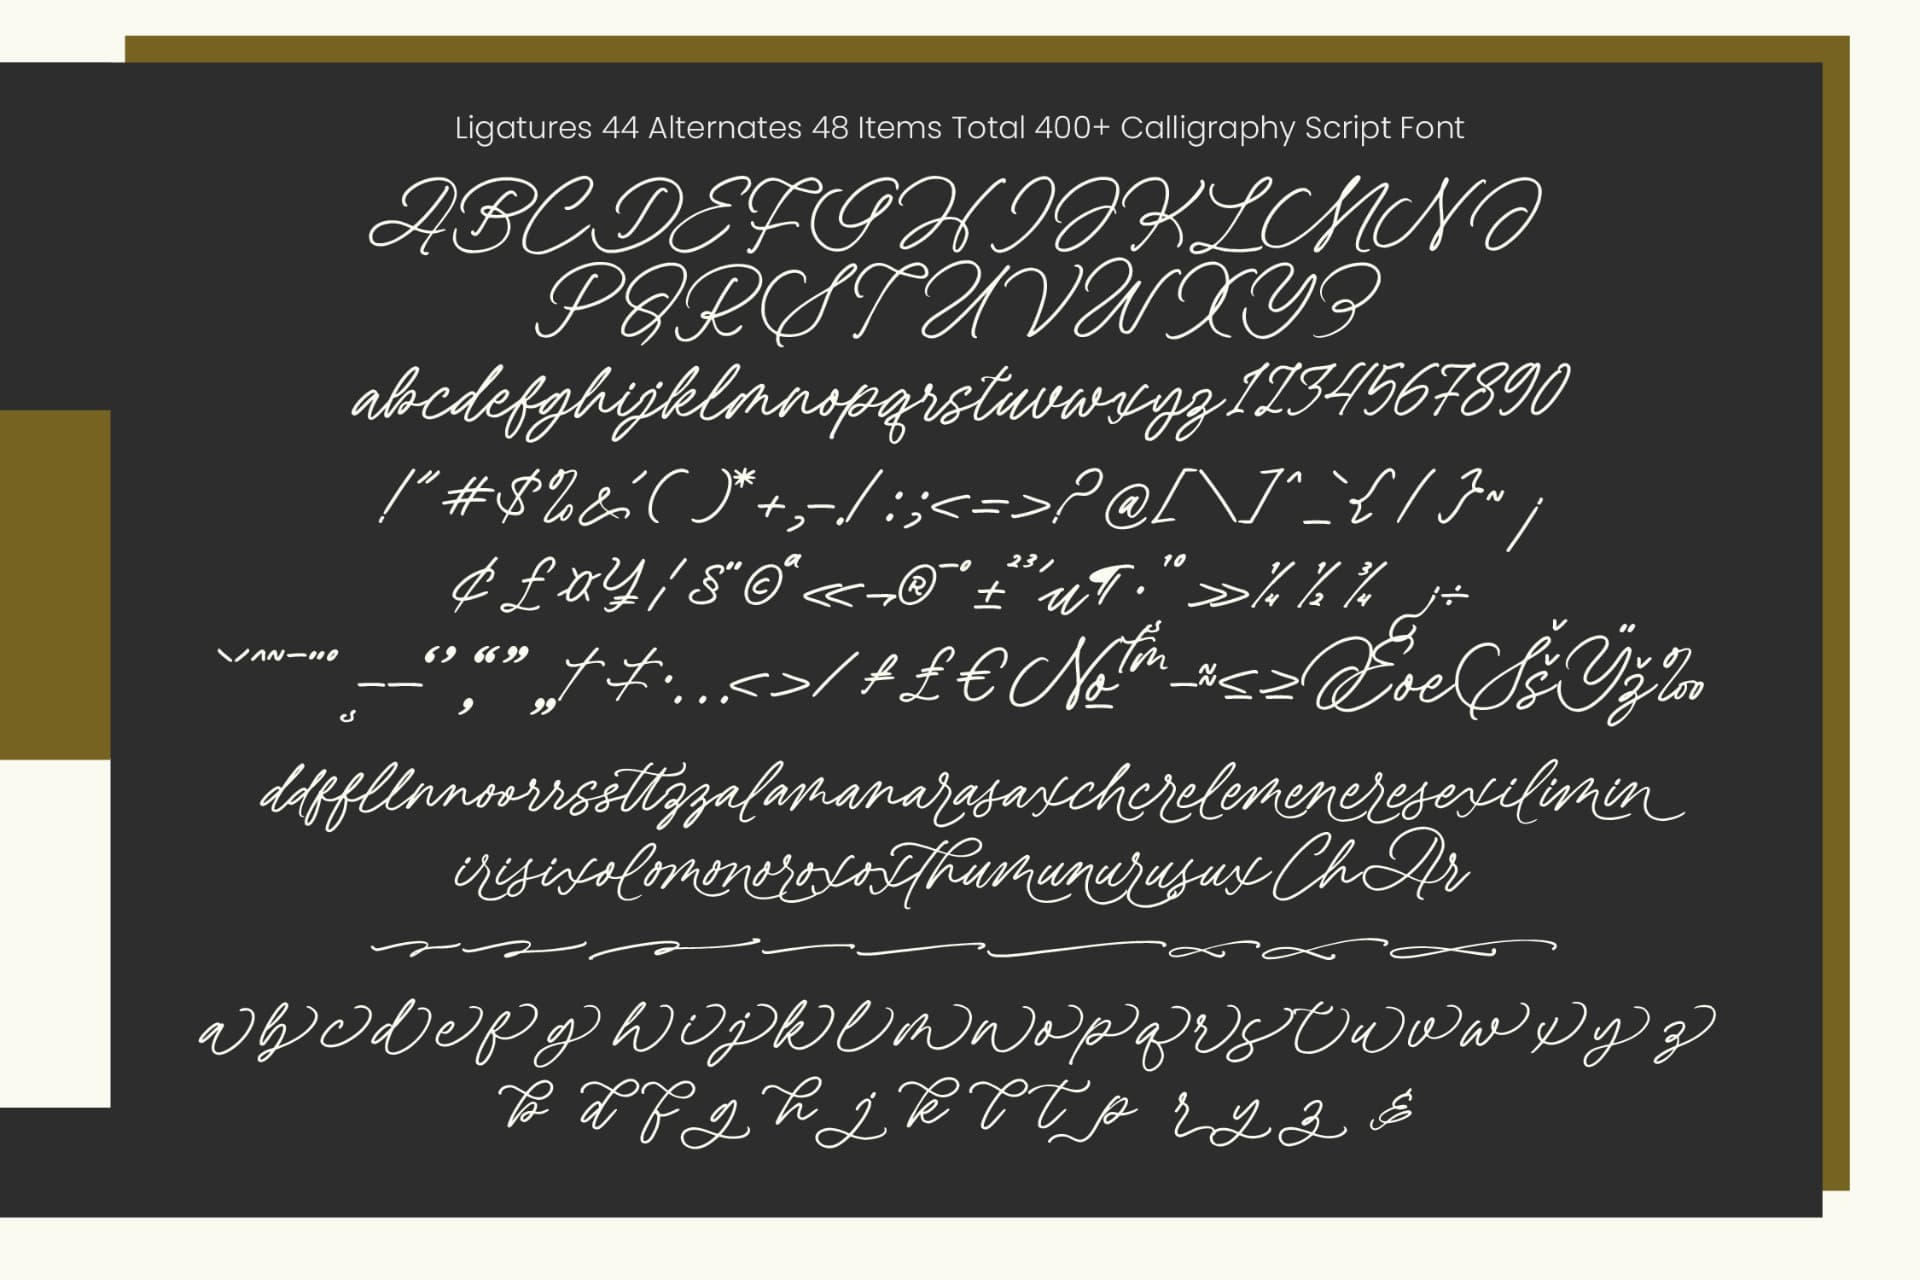 Ligatures 44 Alternates 48 Items Total 400+ Calligraphy Script Font
ABCDEFGHIJKLMNO
PQRSTUVWXYZ
abcdefghijklmnopqrstuvwxyz1234567890
!"#$%&'()*+,-./:;<=>?@[\]^_`{/}~¡
¢£¤¥¦§¨©ª«¬®¯°±²³´µ¶·¹⁰»¼½¾¿÷
–—‘’‚“”„†‡•…<>/₣£€№™−≈≤≥ŒœŠšŸž‰
ddffllnnoorrssttzzalamanarasaxchcrelemeneresexilimin
irisixolomonoroxoxThumunurusuxChAr
abcdefghijklmnopqrstuvwxyz
bdfghjkltpryz&